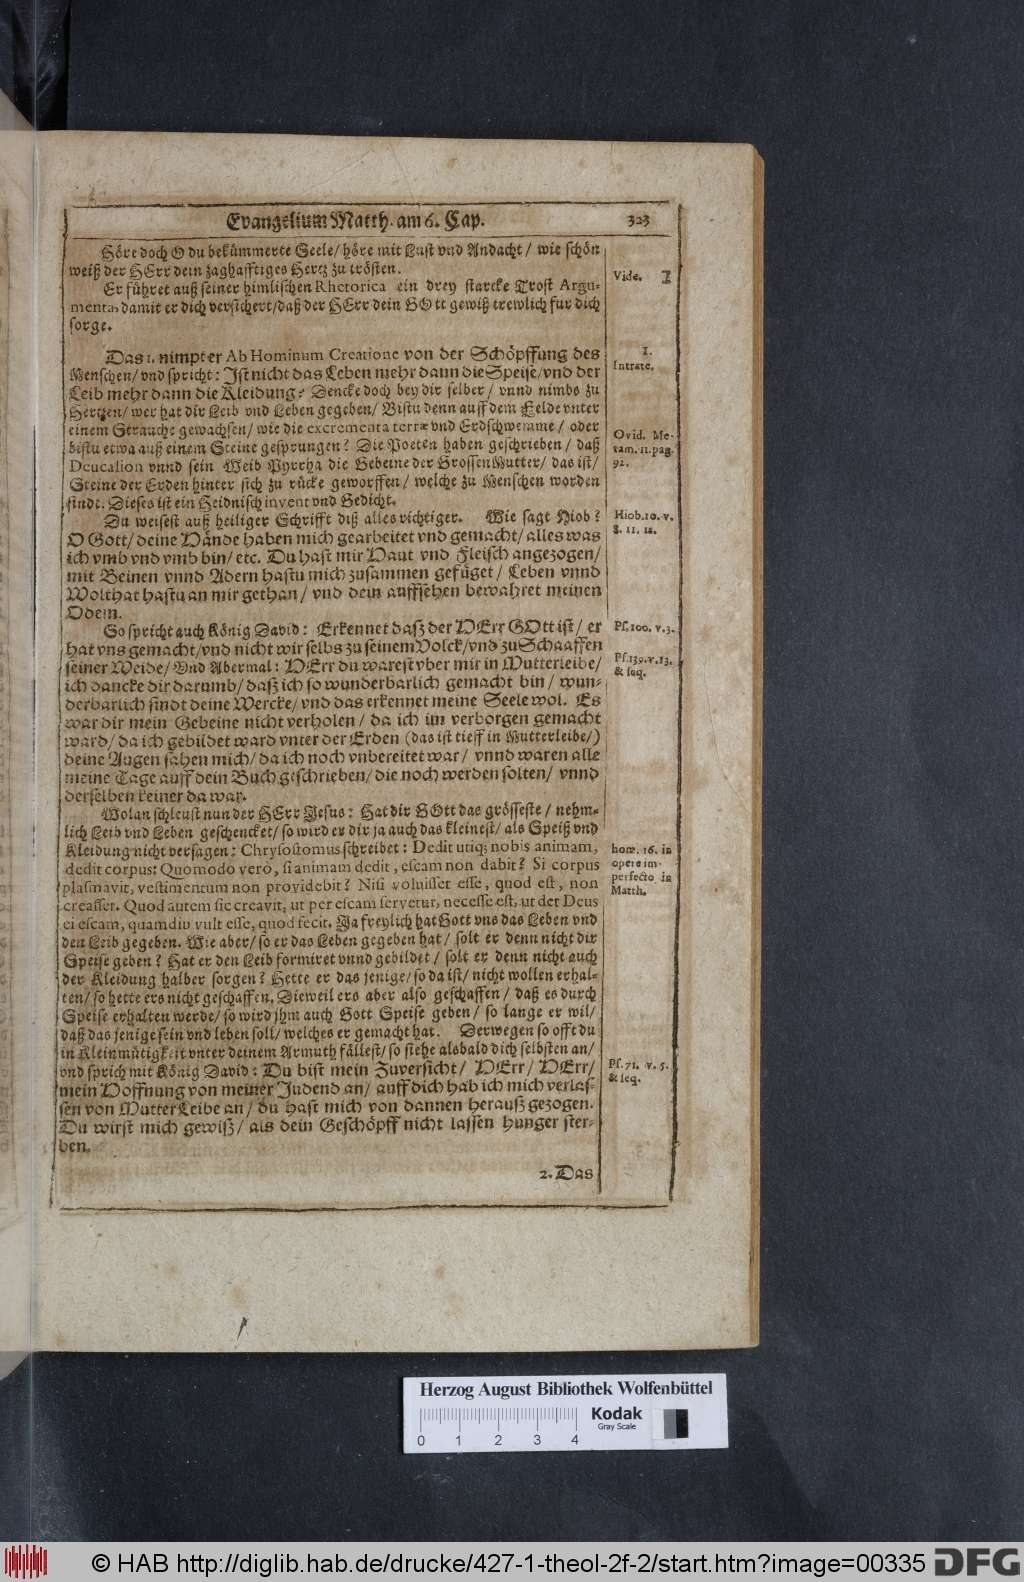 Evangelium Matth. am 6. Cap. 323
Höre doch O du bekümmerte Seele/ höre mit Lust vnd Andacht/ wie schön
weiß der HErr dein zaghafftiges Hertz zu trösten.
Vide.
Er führet auß seiner himlischen Rhetorica ein drey starcke Trost Argu-
menta, damit er dich versichert/ daß der HErr dein GOtt gewiß trewlich fur dich
sorge.
Das 1. nimpt er Ab Hominum Creatione von der Schöpffung des
1.
Intrate.
Menschen/ vnd spricht: Ist nicht das Leben mehr dann die Speise/ vnd der
Leib mehr dann die Kleidung? Dencke doch bey dir selber/ vnnd nimbs zu
Hertzen/ wer hat dir Leib vnd Leben gegeben/ Bistu denn auff dem Felde vnter
einem Strauche gewachsen/ wie die excrementa terræ vnd Erdschwemme/ oder
bistu etwa auß einem Steine gesprungen? Die Poeten haben geschrieben/ daß
Ovid. Me-
tam. 11. pag.
92.
Deucalion vnnd sein Weib Pyrrha die Gebeine der Grossen Mutter/ das ist/
Steine der Erden hinter sich zu rücke geworffen/ welche zu Menschen worden
sindt. Dieses ist ein Heidnisch invent vnd Gedicht.
Du weisest auß heiliger Schrifft diß alles richtiger. Wie sagt Hiob?
Hiob. 10. v.
8. 11. 12.
O Gott/ deine Hände haben mich gearbeitet vnd gemacht/ alles was
ich vmb vnd vmb bin/ etc. Du hast mir Haut vnd Fleisch angezogen/
mit Beinen vnnd Adern hastu mich zusammen gefüget/ Leben vnnd
Wolthat hastu an mir gethan/ vnd dein auffsehen bewahret meinen
Odem.
So spricht auch König David: Erkennet dasz der HErr GOtt ist/ er
Ps. 100. v. 3.
hat vns gemacht/ vnd nicht wir selbs zu seinem Volck/ vnd zu Schaaffen
seiner Weide/ Vnd Abermal: HErr du warest vber mir in Mutterleibe/
Ps. 139. v. 13.
& seq.
ich dancke dir darumb/ dasz ich so wunderbarlich gemacht bin/ wun-
derbarlich sindt deine Wercke/ vnd das erkennet meine Seele wol. Es
war dir mein Gebeine nicht verholen/ da ich im verborgen gemacht
ward/ da ich gebildet ward vnter der Erden (das ist tieff in Mutterleibe/)
deine Augen sahen mich/ da ich noch vnbereitet war/ vnnd waren alle
meine Tage auff dein Buch geschrieben/ die noch werden solten/ vnnd
derselben keiner da war.
Wolan schleust nun der HErr Jesus: Hat dir GOtt das grösseste/ nehm-
lich Leib vnd Leben geschencket/ so wird er dir ja auch das kleinest/ als Speiß vnd
Kleidung nicht versagen: Chrysostomus schreibet: Dedit utiq; nobis animam,
hom. 16. in
opere im-
perfecto in
Matth.
dedit corpus: Quomodo verò, si animam dedit, escam non dabit? Si corpus
plasmavit, vestimentum non providebit? Nisi voluisset esse, quod est, non
creasset. Quod autem sic creavit, ut per escam servetur, necesse est, ut det Deus
ei escam, quamdiu vult esse, quod fecit. Ja freylich hat Gott vns das Leben vnd
den Leib gegeben. Wie aber/ so er das Leben gegeben hat/ solt er denn nicht dir
Speise geben? Hat er den Leib formiret vnnd gebildet/ solt er denn nicht auch
der Kleidung halber sorgen? Hette er das jenige/ so da ist/ nicht wollen erhal-
ten/ so hette ers nicht geschaffen, Dieweil ers aber also geschaffen/ daß es durch
Speise erhalten werde/ so wird jhm auch Gott Speise geben/ so lange er wil/
daß das jenige sein vnd leben soll/ welches er gemacht hat. Derwegen so offt du
in Kleinmütigkeit vnter deinem Armuth fällest/ so siehe alsbald dich selbsten an/
vnd sprich mit König David: Du bist mein Zuversicht/ HErr/ HErr/
Ps. 71. v. 5.
& seq.
mein Hoffnung von meiner Judend an/ auff dich hab ich mich verlas-
sen von Mutter Leibe an/ du hast mich von dannen herausz gezogen.
Du wirst mich gewisz/ als dein Geschöpff nicht lassen hunger ster-
ben.
2. Das
Herzog August Bibliothek Wolfenbüttel
Kodak
Gray Scale
0 1 2 3 4
© HAB http://diglib.hab.de/drucke/427-1-theol-2f-2/start.htm?image=00335
DFG